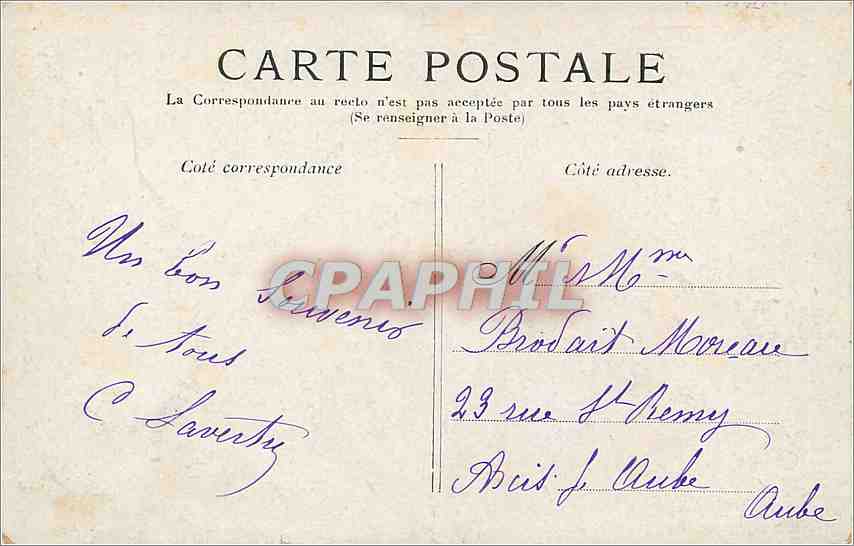 CARTE POSTALE
La Correspondance au recto n'est pas acceptée par tous les pays étrangers
(Se renseigner à la Poste)
Coté correspondance
Un bon Souvenir
de tous
C
Côté adresse.
Mr & Mme
Brodait Moreau
23 rue St Remy
Arcis s Aube
Aube
CPAPHIL